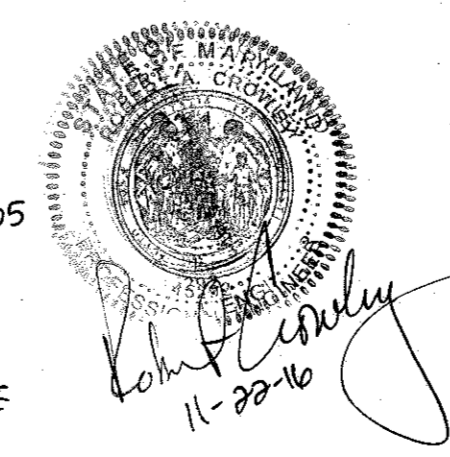 STATE OF MARYLAND
ROBERT A. CROWLEY
05
PROFESSIONAL ENGINEER
Robert Crowley
11-22-16
E